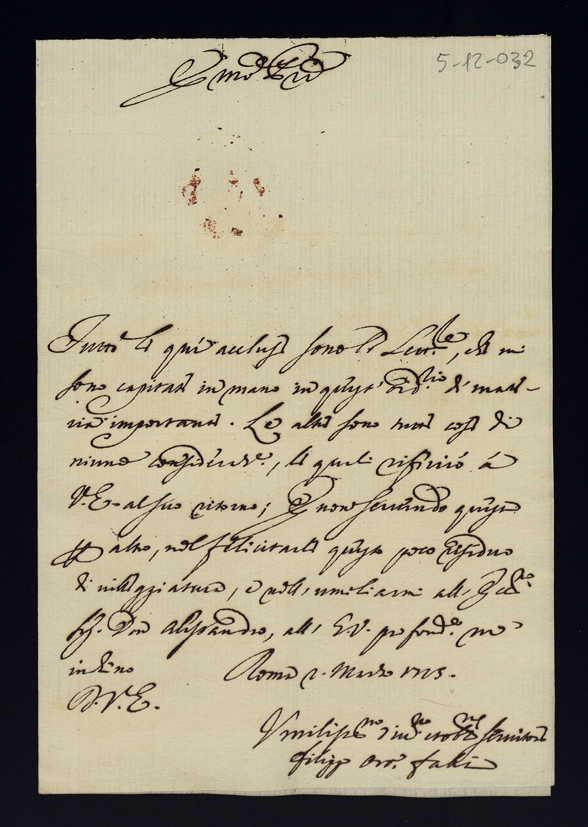 5-12-032
Tutte le qui accluse sono le Lett.re, che mi
sono capitate in mano in quest' ord.rio di mate-
ria importante. Le altre sono tutte cose di
niuna considerat.e, le quali riferirò a
V.E. al suo ritorno; E non servendo questa
altro, nel felicitarle questo poco residuo
di villeggiatura, e nell' umiliarmi all'
Sig. Don Alessandro, all' E.V. profond.e me
inchino
D.V.E. Roma 2. Marzo 1715.
Umiliss.mo et obb.mo servitore
Filipp